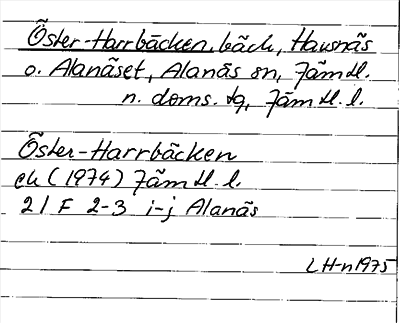 Öster-Harrbäcken, bäck, Havsnäs
o. Alanäset, Alanäs sn, Jämtl.
n. doms. tg, Jämtl. l.
Öster-Harrbäcken
ek (1974) Jämtl. l.
21 F 2-3 i-j Alanäs
LH-n 1975